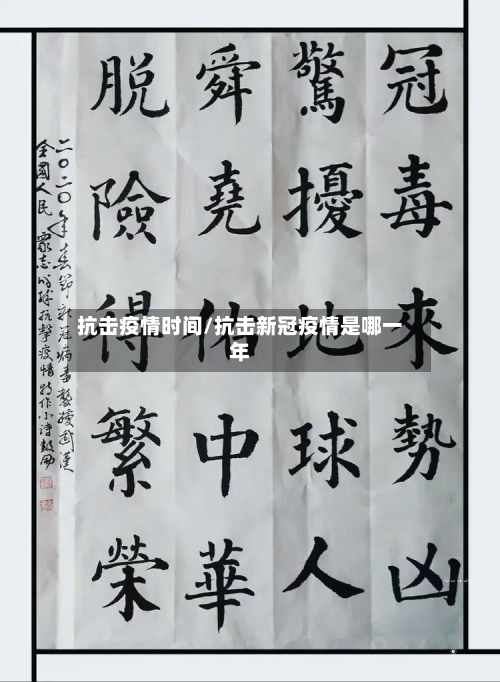 冠毒來勢凶
驚擾地球人
舜堯佑中華
脱險得繁榮
二〇二〇年春節新冠病毒襲擾武漢
全國人民眾志成城抗擊疫情特作小詩鼓勵
抗击疫情时间/抗击新冠疫情是哪一
年